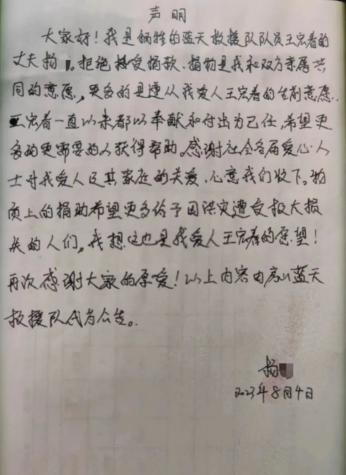 声明
大家好！我是牺牲的蓝天救援队队员王宏春的
丈夫杨，拒绝接受捐款、捐物是我和双方亲属共
同的意愿，更多的是遵从我爱人王宏春的生前意愿。
王宏春一直以来都以奉献和付出为己任，希望更
多的更需要的人获得帮助。感谢社会各届爱心人
士对我爱人及其家庭的关爱，心意我们收下。物
质上的捐助希望更多给予因洪灾遭受极大损
失的人们，我想这也是我爱人王宏春的愿望！
再次感谢大家的厚爱！以上内容由房山蓝天
救援队代为公告。
杨
2023年8月4日